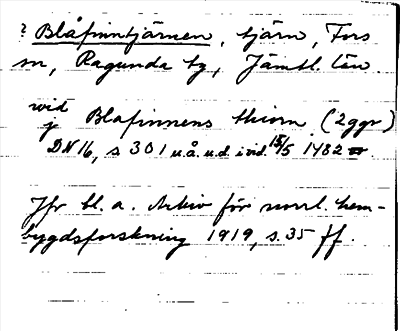 ? Blåfinntjärnen, tjärn, Fors
sn, Ragunda tg, Jämtl. län
wid
j Blafinnens thiorn (2ggr)
DN 16, s 301 u.å. u.d. i vid. 15/5 1482
Jfr bl. a. Arkiv för norrl. hem-
bygdsforskning 1919, s. 35 ff.